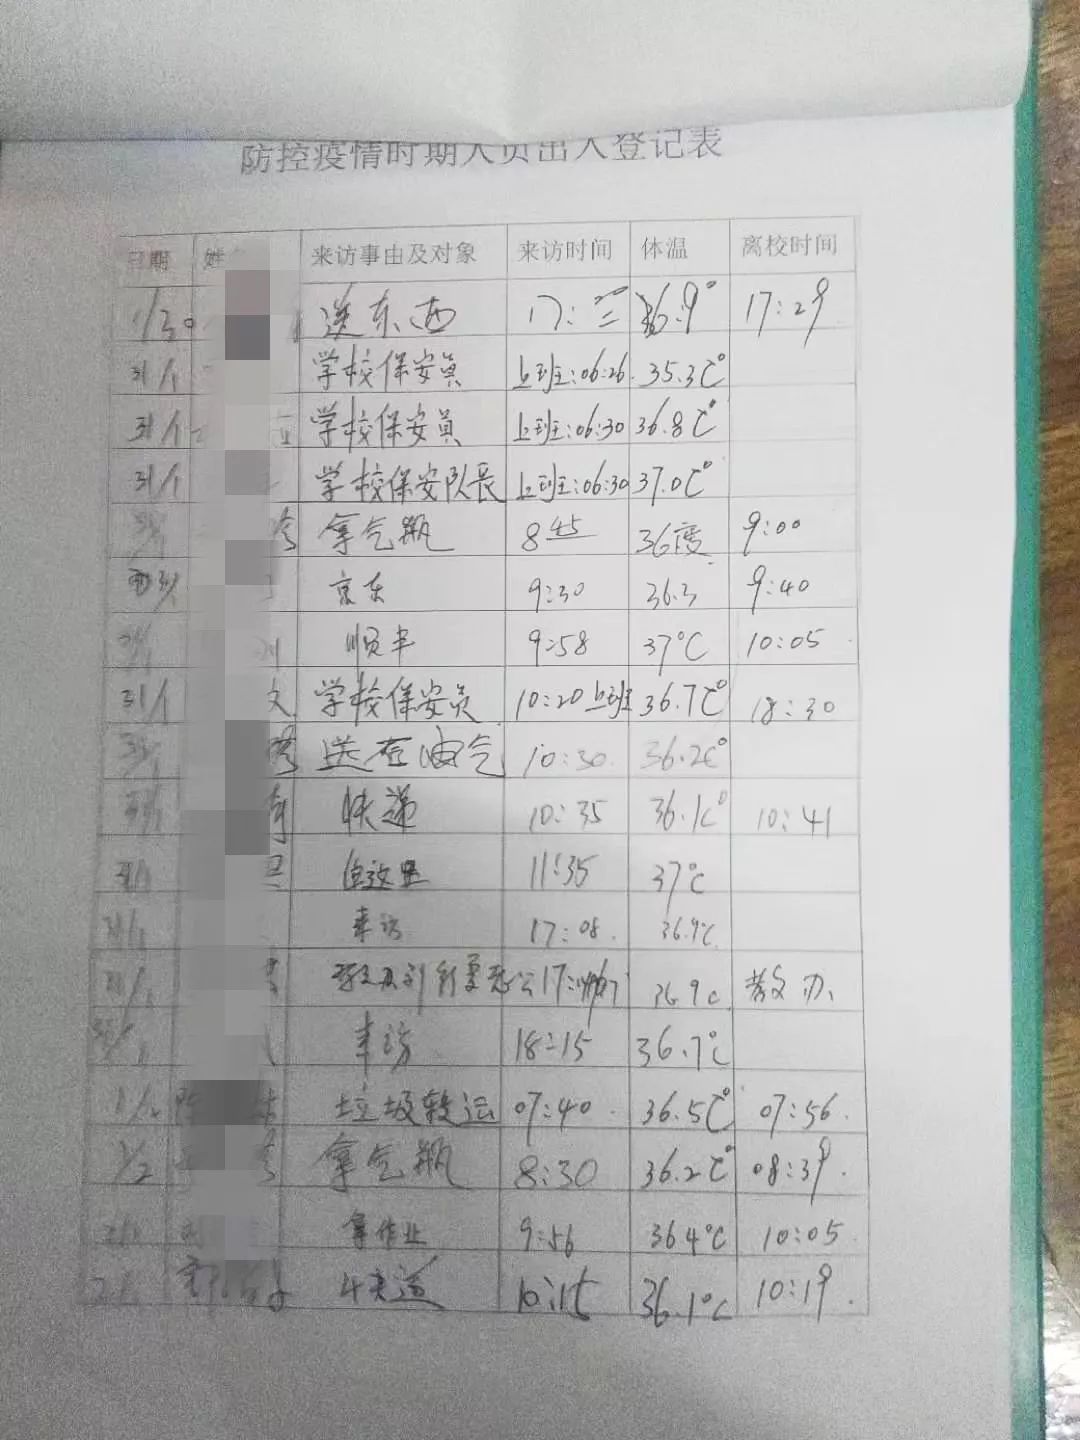 防控疫情时期人员出入登记表
日期 姓 来访事由及对象 来访时间 体温 离校时间
1/30 送东西 17: 36.9° 17:29
31/1 学校保安员 上班:06:26 35.3℃
31/1 学校保安员 上班:06:30 36.8℃
31/1 学校保安队长 上班:06:30 37.0℃
拿气瓶 8 45 36度 9:00
京东 9:30 36.3 9:40
顺丰 9:58 37℃ 10:05
31/1 文 学校保安员 10:20上班 36.7℃ 18:30
送石油气 10:30 36.2℃
快递 10:35 36.1℃ 10:41
11:35 37℃
来访 17:08 36.9℃
36.9℃ 教办
来访 18:15 36.7℃
1/2 垃圾转运 07:40 36.5℃ 07:56
1/2 拿气瓶 8:30 36.2℃ 08:39
拿作业 9:56 36.4℃ 10:05
快递 10:15 36.1℃ 10:19